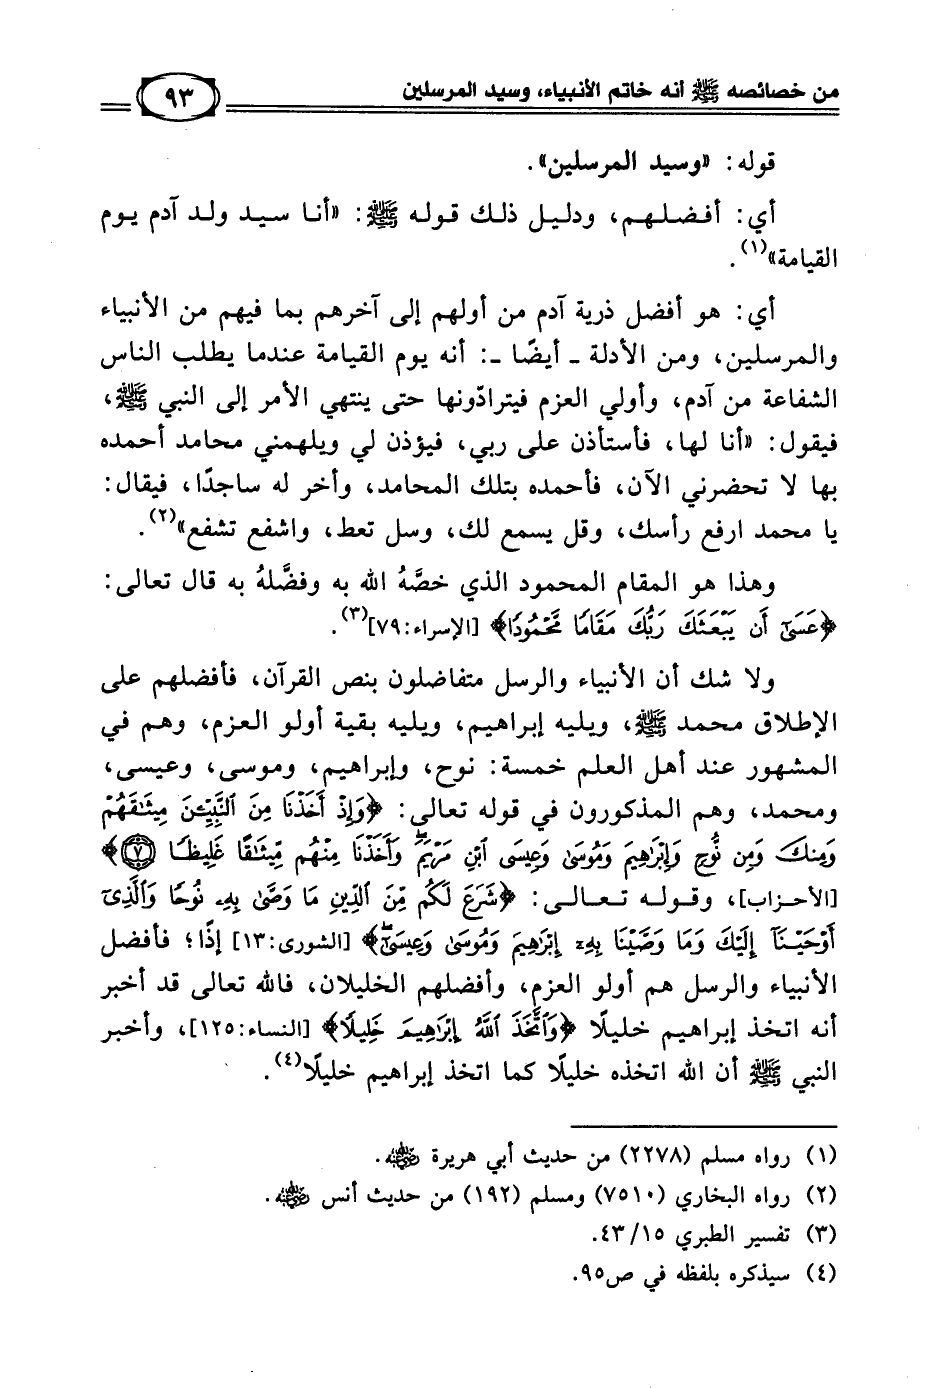 من خصائصه ﷺ أنه خاتم الأنبياء، وسيد المرسلين
٩٣
قوله: «وسيد المرسلين».
أي: أفضلهم، ودليل ذلك قوله ﷺ: «أنا سيد ولد آدم يوم
القيامة»(١).
أي: هو أفضل ذرية آدم من أولهم إلى آخرهم بما فيهم من الأنبياء
والمرسلين، ومن الأدلة ـ أيضًا ـ: أنه يوم القيامة عندما يطلب الناس
الشفاعة من آدم، وأولي العزم فيترادّونها حتى ينتهي الأمر إلى النبي ﷺ،
فيقول: «أنا لها، فأستأذن على ربي، فيؤذن لي ويلهمني محامد أحمده
بها لا تحضرني الآن، فأحمده بتلك المحامد، وأخر له ساجدًا، فيقال:
يا محمد ارفع رأسك، وقل يسمع لك، وسل تعط، واشفع تشفع»(٢).
وهذا هو المقام المحمود الذي خصَّهُ الله به وفضَّلهُ به قال تعالى:
﴿عَسَىٰٓ أَن يَبْعَثَكَ رَبُّكَ مَقَامًا مَّحْمُودًا﴾ [الإسراء:٧٩](٣).
ولا شك أن الأنبياء والرسل متفاضلون بنص القرآن، فأفضلهم على
الإطلاق محمد ﷺ، ويليه إبراهيم، ويليه بقية أولو العزم، وهم في
المشهور عند أهل العلم خمسة: نوح، وإبراهيم، وموسى، وعيسى،
ومحمد، وهم المذكورون في قوله تعالى: ﴿وَإِذْ أَخَذْنَا مِنَ ٱلنَّبِيِّـۧنَ مِيثَٰقَهُمْ
وَمِنكَ وَمِن نُّوحٍ وَإِبْرَٰهِيمَ وَمُوسَىٰ وَعِيسَى ٱبْنِ مَرْيَمَ ۖ وَأَخَذْنَا مِنْهُم مِّيثَٰقًا غَلِيظًا ٧﴾
[الأحزاب]، وقوله تعالى: ﴿شَرَعَ لَكُم مِّنَ ٱلدِّينِ مَا وَصَّىٰ بِهِۦ نُوحًا وَٱلَّذِىٓ
أَوْحَيْنَآ إِلَيْكَ وَمَا وَصَّيْنَا بِهِۦٓ إِبْرَٰهِيمَ وَمُوسَىٰ وَعِيسَىٰٓ ۖ﴾ [الشورى:١٣] إذًا؛ فأفضل
الأنبياء والرسل هم أولو العزم، وأفضلهم الخليلان، فالله تعالى قد أخبر
أنه اتخذ إبراهيم خليلًا ﴿وَٱتَّخَذَ ٱللَّهُ إِبْرَٰهِيمَ خَلِيلًا﴾ [النساء:١٢٥]، وأخبر
النبي ﷺ أن الله اتخذه خليلًا كما اتخذ إبراهيم خليلًا(٤).
(١) رواه مسلم (٢٢٧٨) من حديث أبي هريرة رضي الله عنه.
(٢) رواه البخاري (٧٥١٠) ومسلم (١٩٢) من حديث أنس رضي الله عنه.
(٣) تفسير الطبري ١٥/ ٤٣.
(٤) سيذكره بلفظه في ص٩٥.